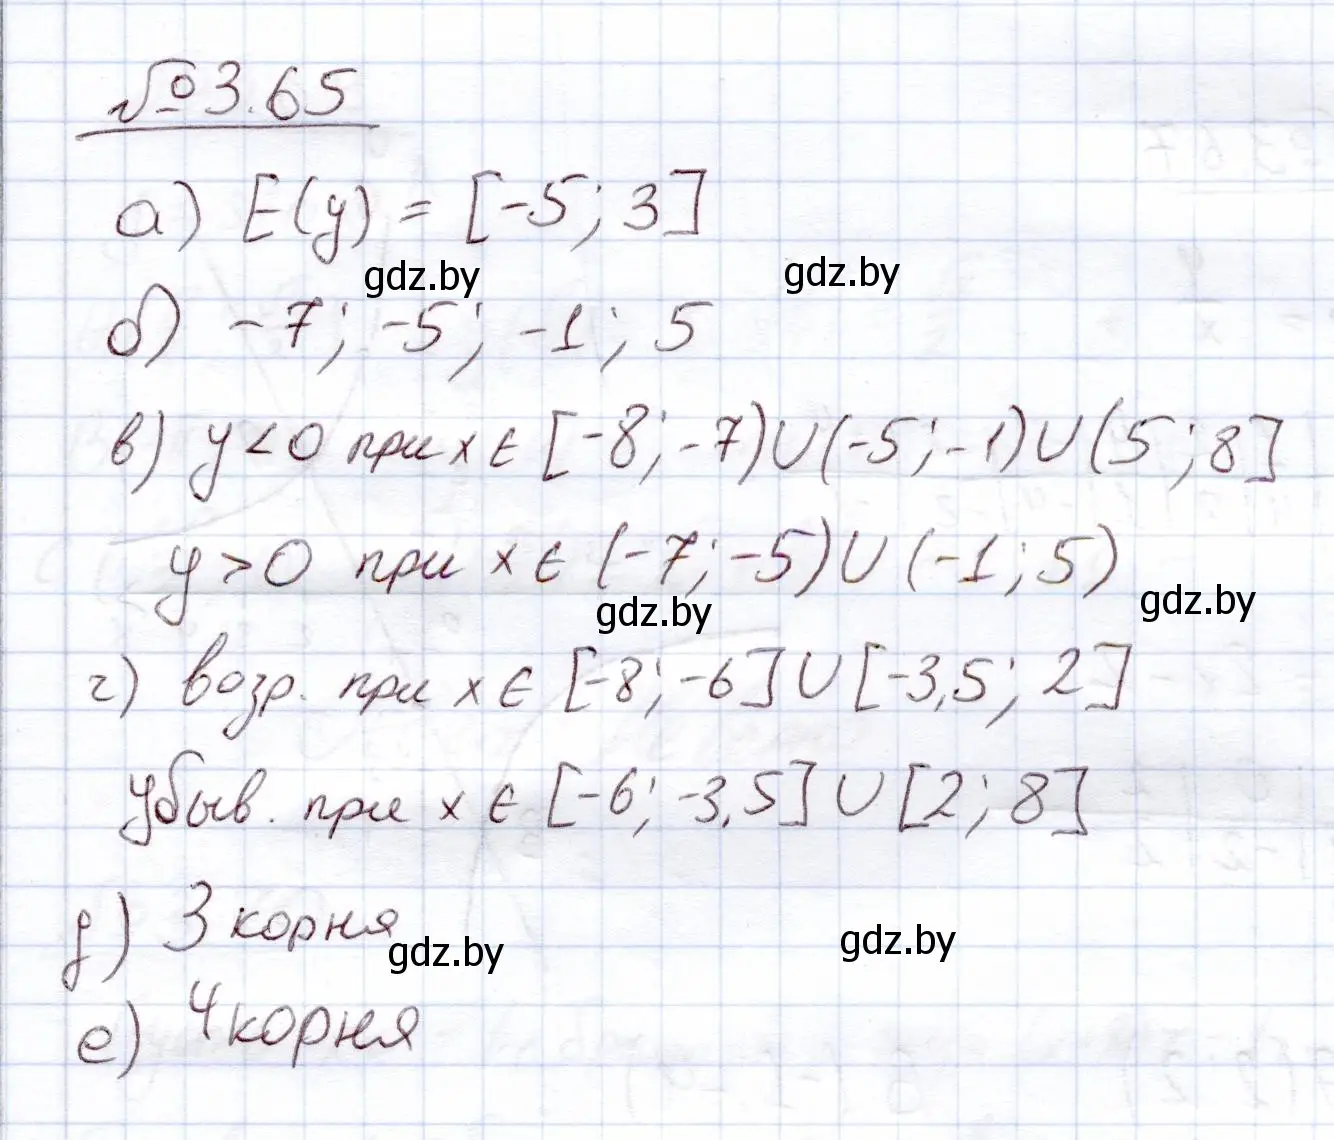 № 3.65
а) E(y) = [-5; 3]
gdz.by gdz.by
б) -7; -5; -1; 5
в) y < 0 при x ∈ [-8; -7) ∪ (-5; -1) ∪ (5; 8]
y > 0 при x ∈ (-7; -5) ∪ (-1; 5)
gdz.by gdz.by
г) возр. при x ∈ [-8; -6] ∪ [-3,5; 2]
убыв. при x ∈ [-6; -3,5] ∪ [2; 8]
д) 3 корня
gdz.by gdz.by
е) 4 корня